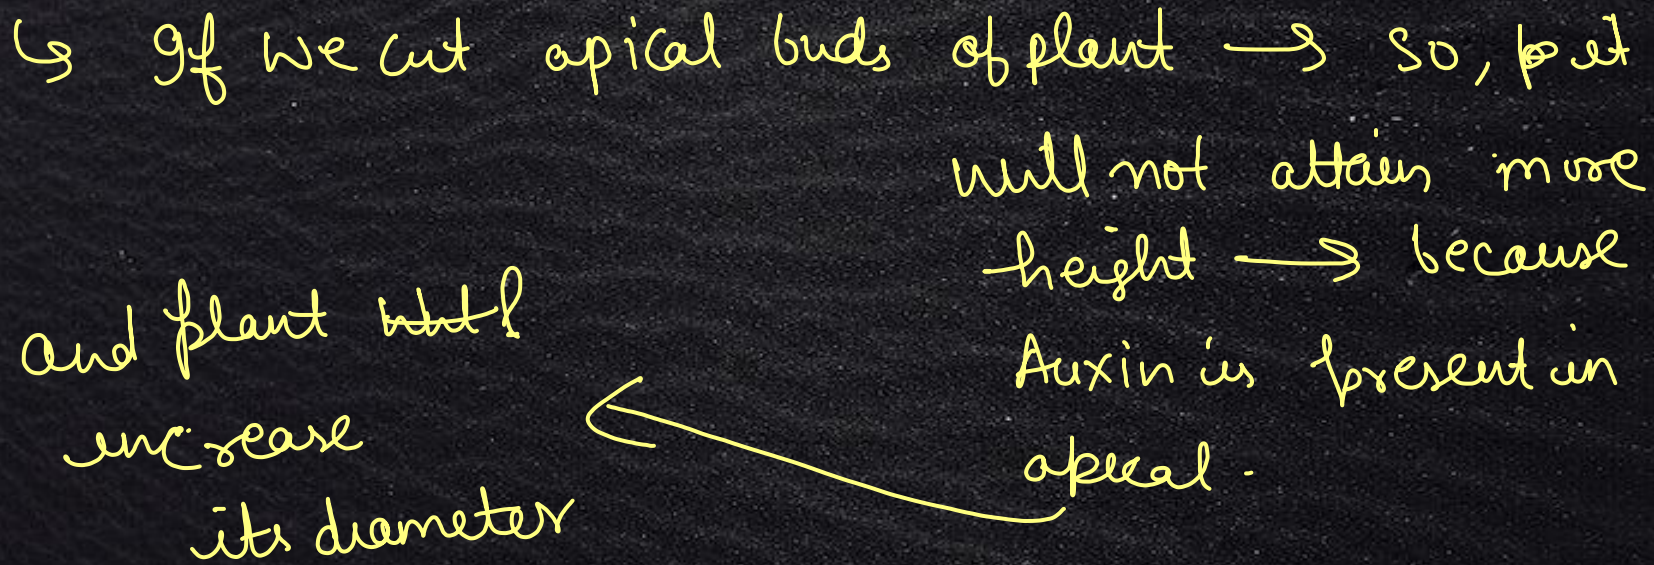 ↳ If we cut apical buds of plant → so, it
will not attain more
height → because
Auxin is present in
apical.
and plant
increase
its diameter